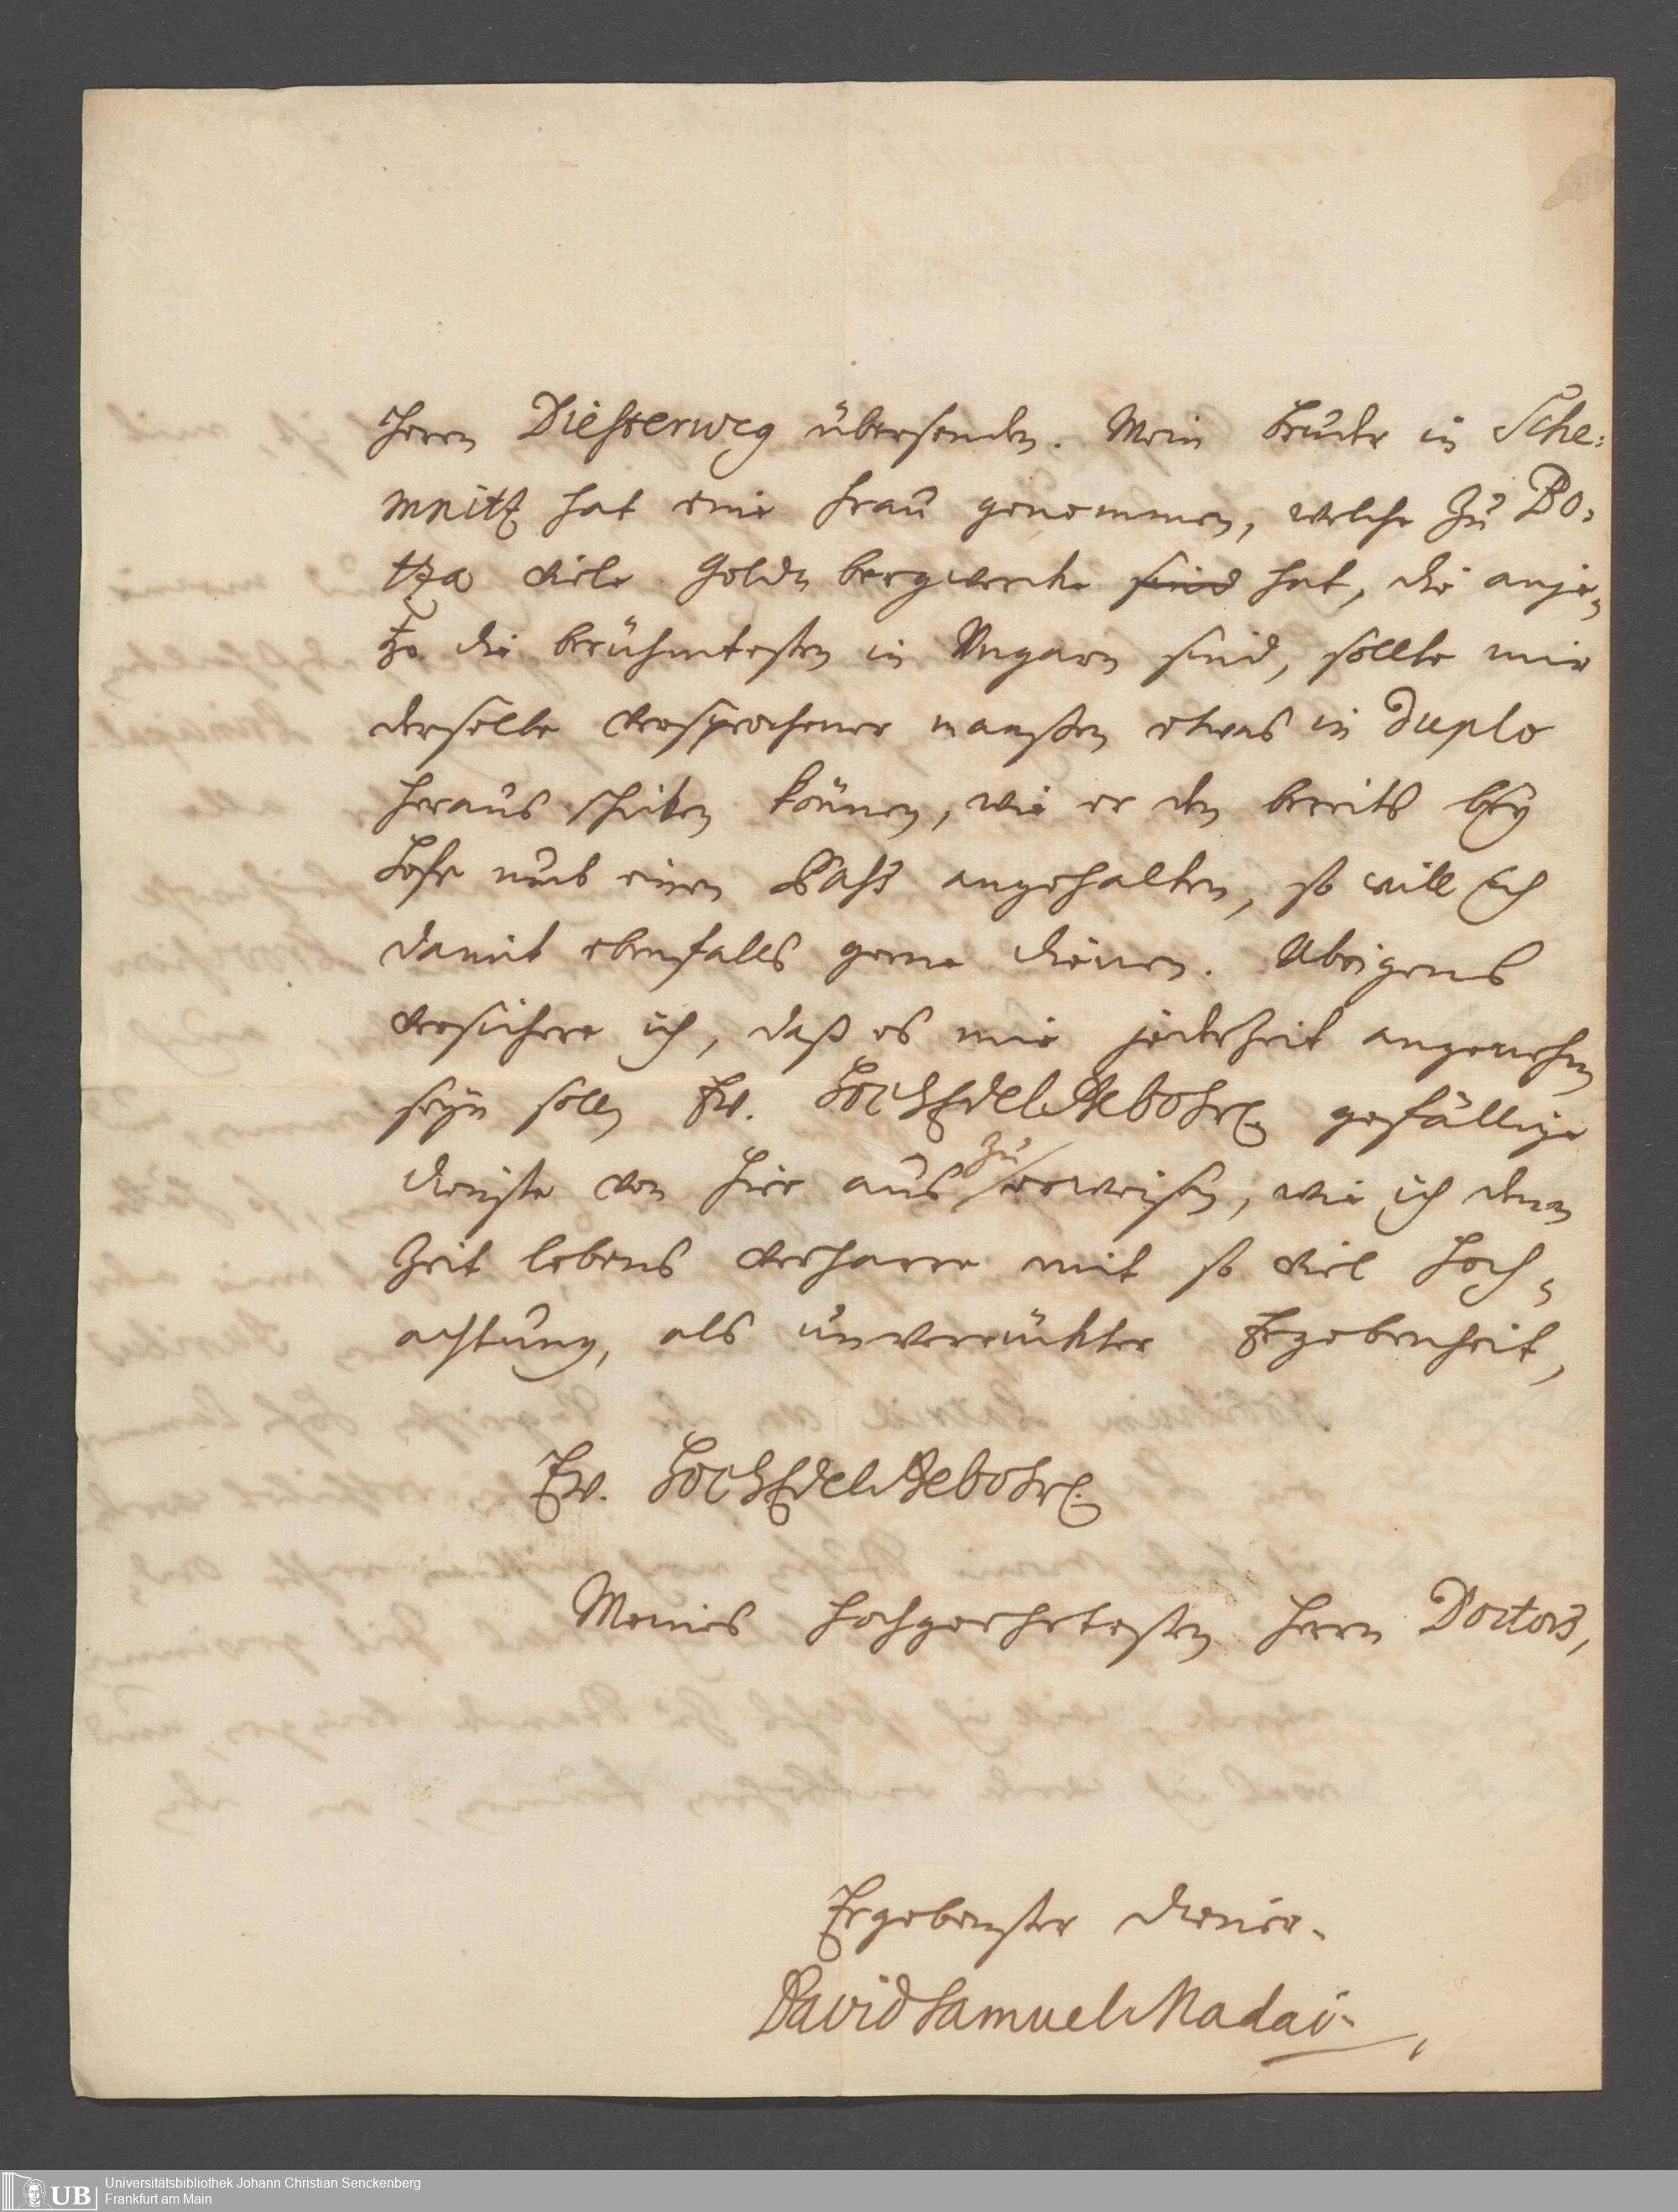 Herrn Diesterweg übersenden. Mein Bruder in Sche-
mnitz hat eine Frau genommen, welche zu Bo-
tza viele Golden bergwercke sind hat, die anje-
tzo die berühmtesten in Ungarn sind, sollte mir
derselbe versprochener maaßen etwas in duplo
heraus schicken können, wie er den bereits bey
Hofe umb einen Pass angehalten, so will ich
damit ebenfalls gerne dienen. Ubrigens
versichere ich, daß es mir jederzeit angenehm
seyn soll, Ew. HochEdelGebohr. gefällige
Dienste von hier aus zu erweisen, wie ich denn
Zeit lebens verharre mit so viel Hoch-
achtung, als unverrückter Ergebenheit,
Ew. HochEdelGebohr.
Meines Hochgeehrtesten Herrn Doctors,
Ergebenster Diener.
David Samuel Madai.
UB Universitätsbibliothek Johann Christian Senckenberg
Frankfurt am Main